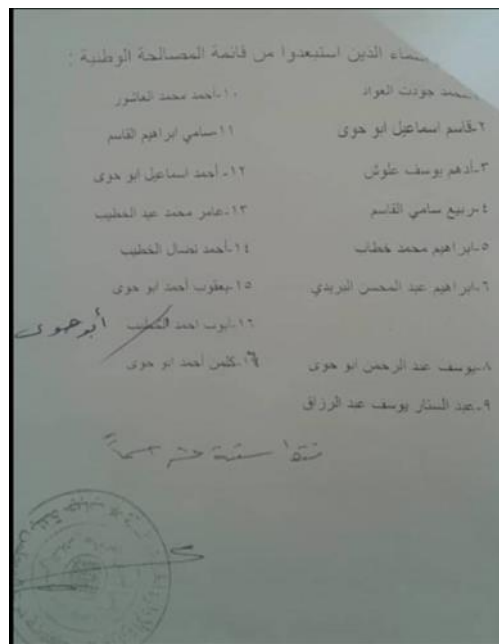 الذين استبعدوا من قائمة المصالحة الوطنية :
محمد جودت العواد
٢-قاسم اسماعيل ابو حوى
٣-أدهم يوسف علوش
٤-ربيع سامي القاسم
٥-ابراهيم محمد خطاب
٦-ابراهيم عبد المحسن البريدي
٨-يوسف عبد الرحمن ابو حوى
٩-عبد الستار يوسف عبد الرزاق
١٠-أحمد محمد العاشور
١١-سامي ابراهيم القاسم
١٢-أحمد اسماعيل ابو حوى
١٣-عامر محمد عيد الخطيب
١٤-أحمد نضال الخطيب
١٥-يعقوب أحمد ابو حوى
١٦-أيوب احمد الخطيب أبو حوى
١٦-كلثمن أحمد ابو حوى
فقط ستة عشر اسماً